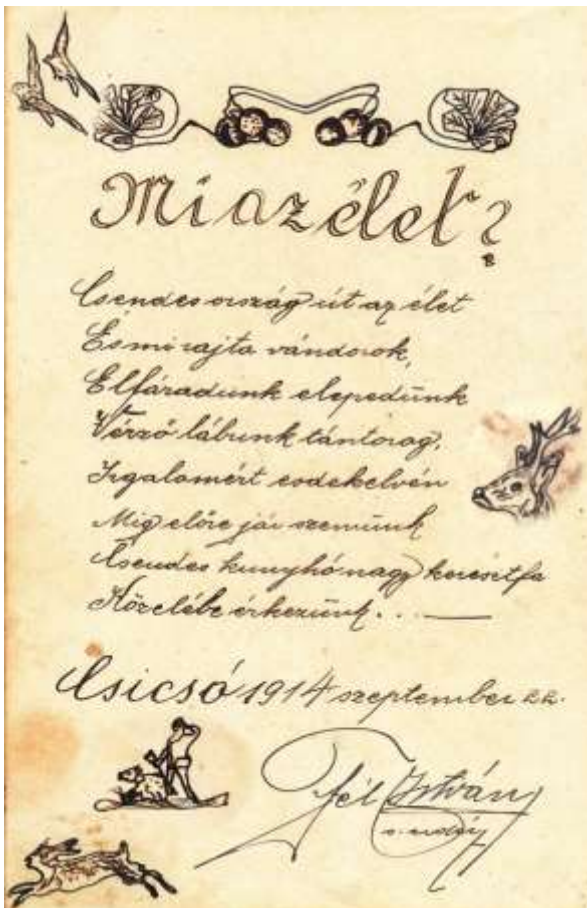 Mi az élet?
Csendes ország út az élet
És mi rajta vándorok,
Elfáradunk elepedünk
Vérző lábunk tántorog,
Irgalomért esdekelvén
Mig előre jár szemünk
Csendes kunyhó nagy keresztfa
Közelébe érkezünk...
Csicsó 1914 szeptember 22.
Fél István